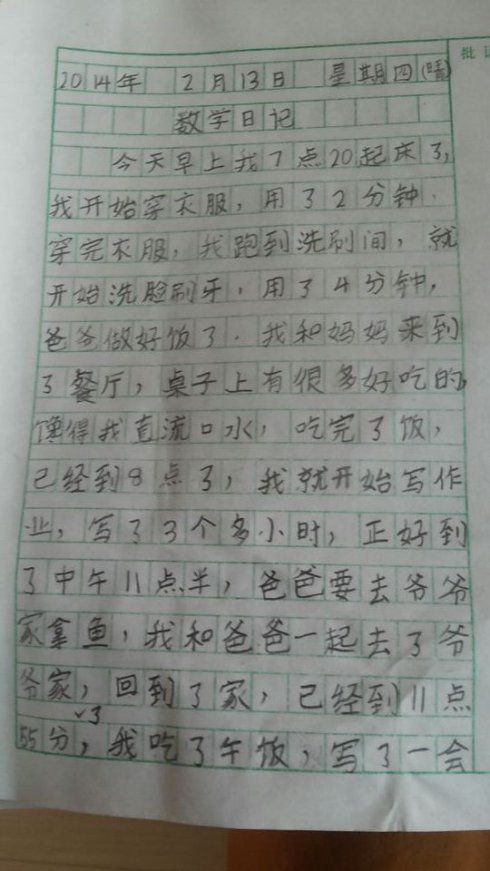 批
2014年 2月13日 星期四(晴)
数学日记
今天早上我7点20起床了,
我开始穿衣服,用了2分钟.
穿完衣服,我跑到洗刷间,就
开始洗脸刷牙,用了4分钟,
爸爸做好饭了.我和妈妈来到
了餐厅,桌子上有很多好吃的,
馋得我直流口水,吃完了饭,
已经到8点了,我就开始写作
业,写了3个多小时,正好到
了中午11点半,爸爸要去爷爷
家拿鱼,我和爸爸一起去了爷
爷家,回到了家,已经到11点
55分了,我吃了午饭,写了一会